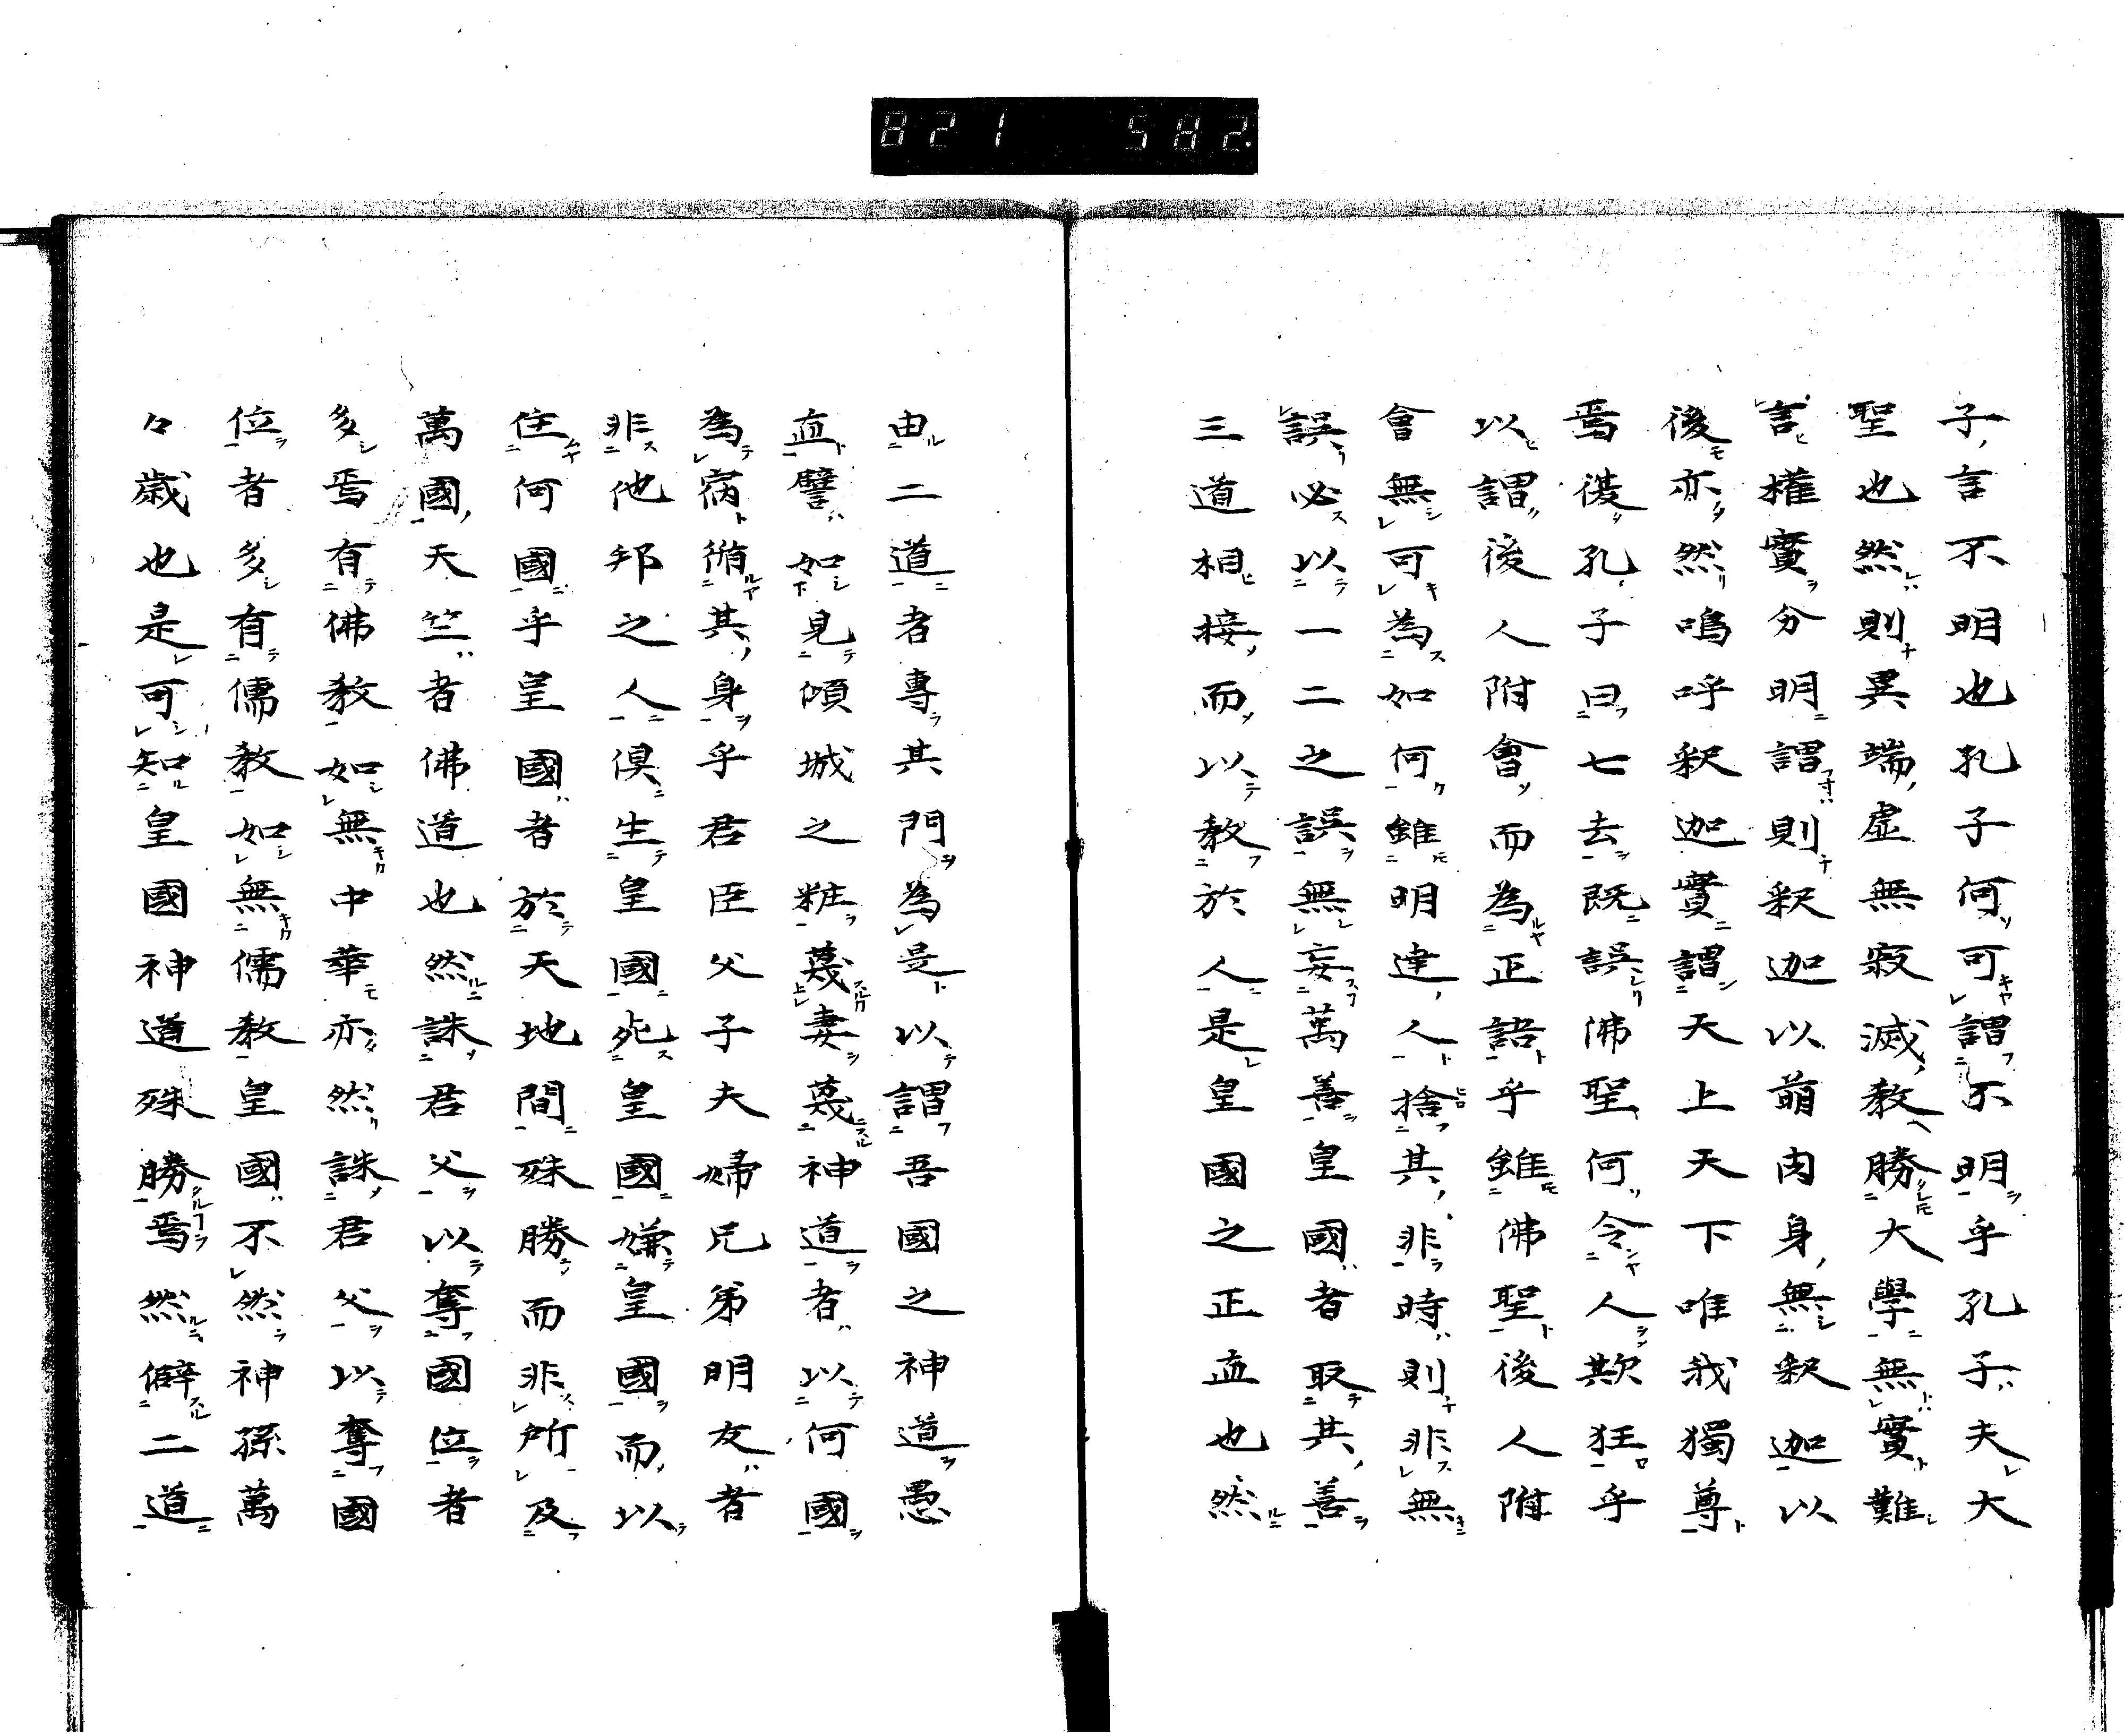 821 582.
子言不明也孔子何可謂不明乎孔子夫大
聖也然則異端虛無寂滅教勝大學無實難
言權實分明謂則釈迦以萌肉身無釈迦以
後亦然嗚呼釈迦實謂天上天下唯我獨尊
焉後孔子曰七去既誤佛聖何令人欺狂乎
以謂後人附會而為正語乎雖佛聖後人附
會無可為如何雖明達人捨其非時則非無
誤必以一二之誤無妄萬善皇國者取其善
三道相接而以教於人是皇國之正直也然
由二道者專其門為是以謂吾國之神道愚
直譬如見傾城之粧蔑妻蔑神道者以何國
為病脩其身乎君臣父子夫婦兄弟明友者
非他邦之人俱生皇國死皇國嫌皇國而以
住何國乎皇國者於天地間殊勝而非所及
萬國天竺者佛道也然誅君父以奪國位者
多焉有佛教如無中華亦然誅君父以奪國
位者多有儒教如無儒教皇國不然神孫萬
々歳也是可知皇國神道殊勝焉然僻二道